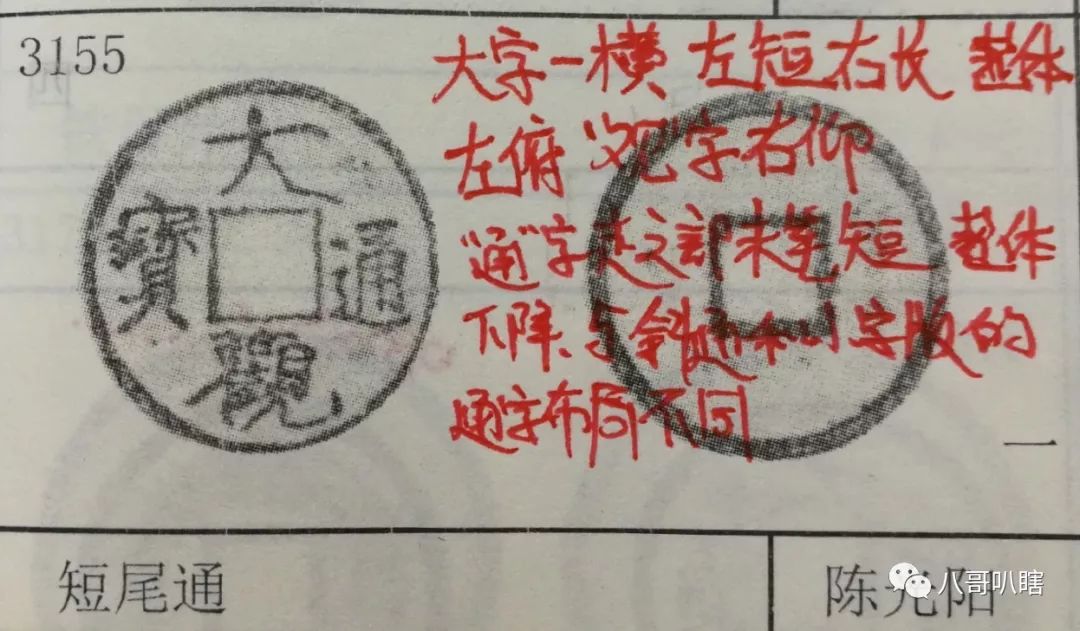 3155
大
寶 通
觀
大字一横 左短右长 整体
左俯 "观"字右仰
"通"字走之部末笔短 整体
下降、与斜通和小字版的
通字布局不同
一
短尾通
陈光阳
八哥叭瞎